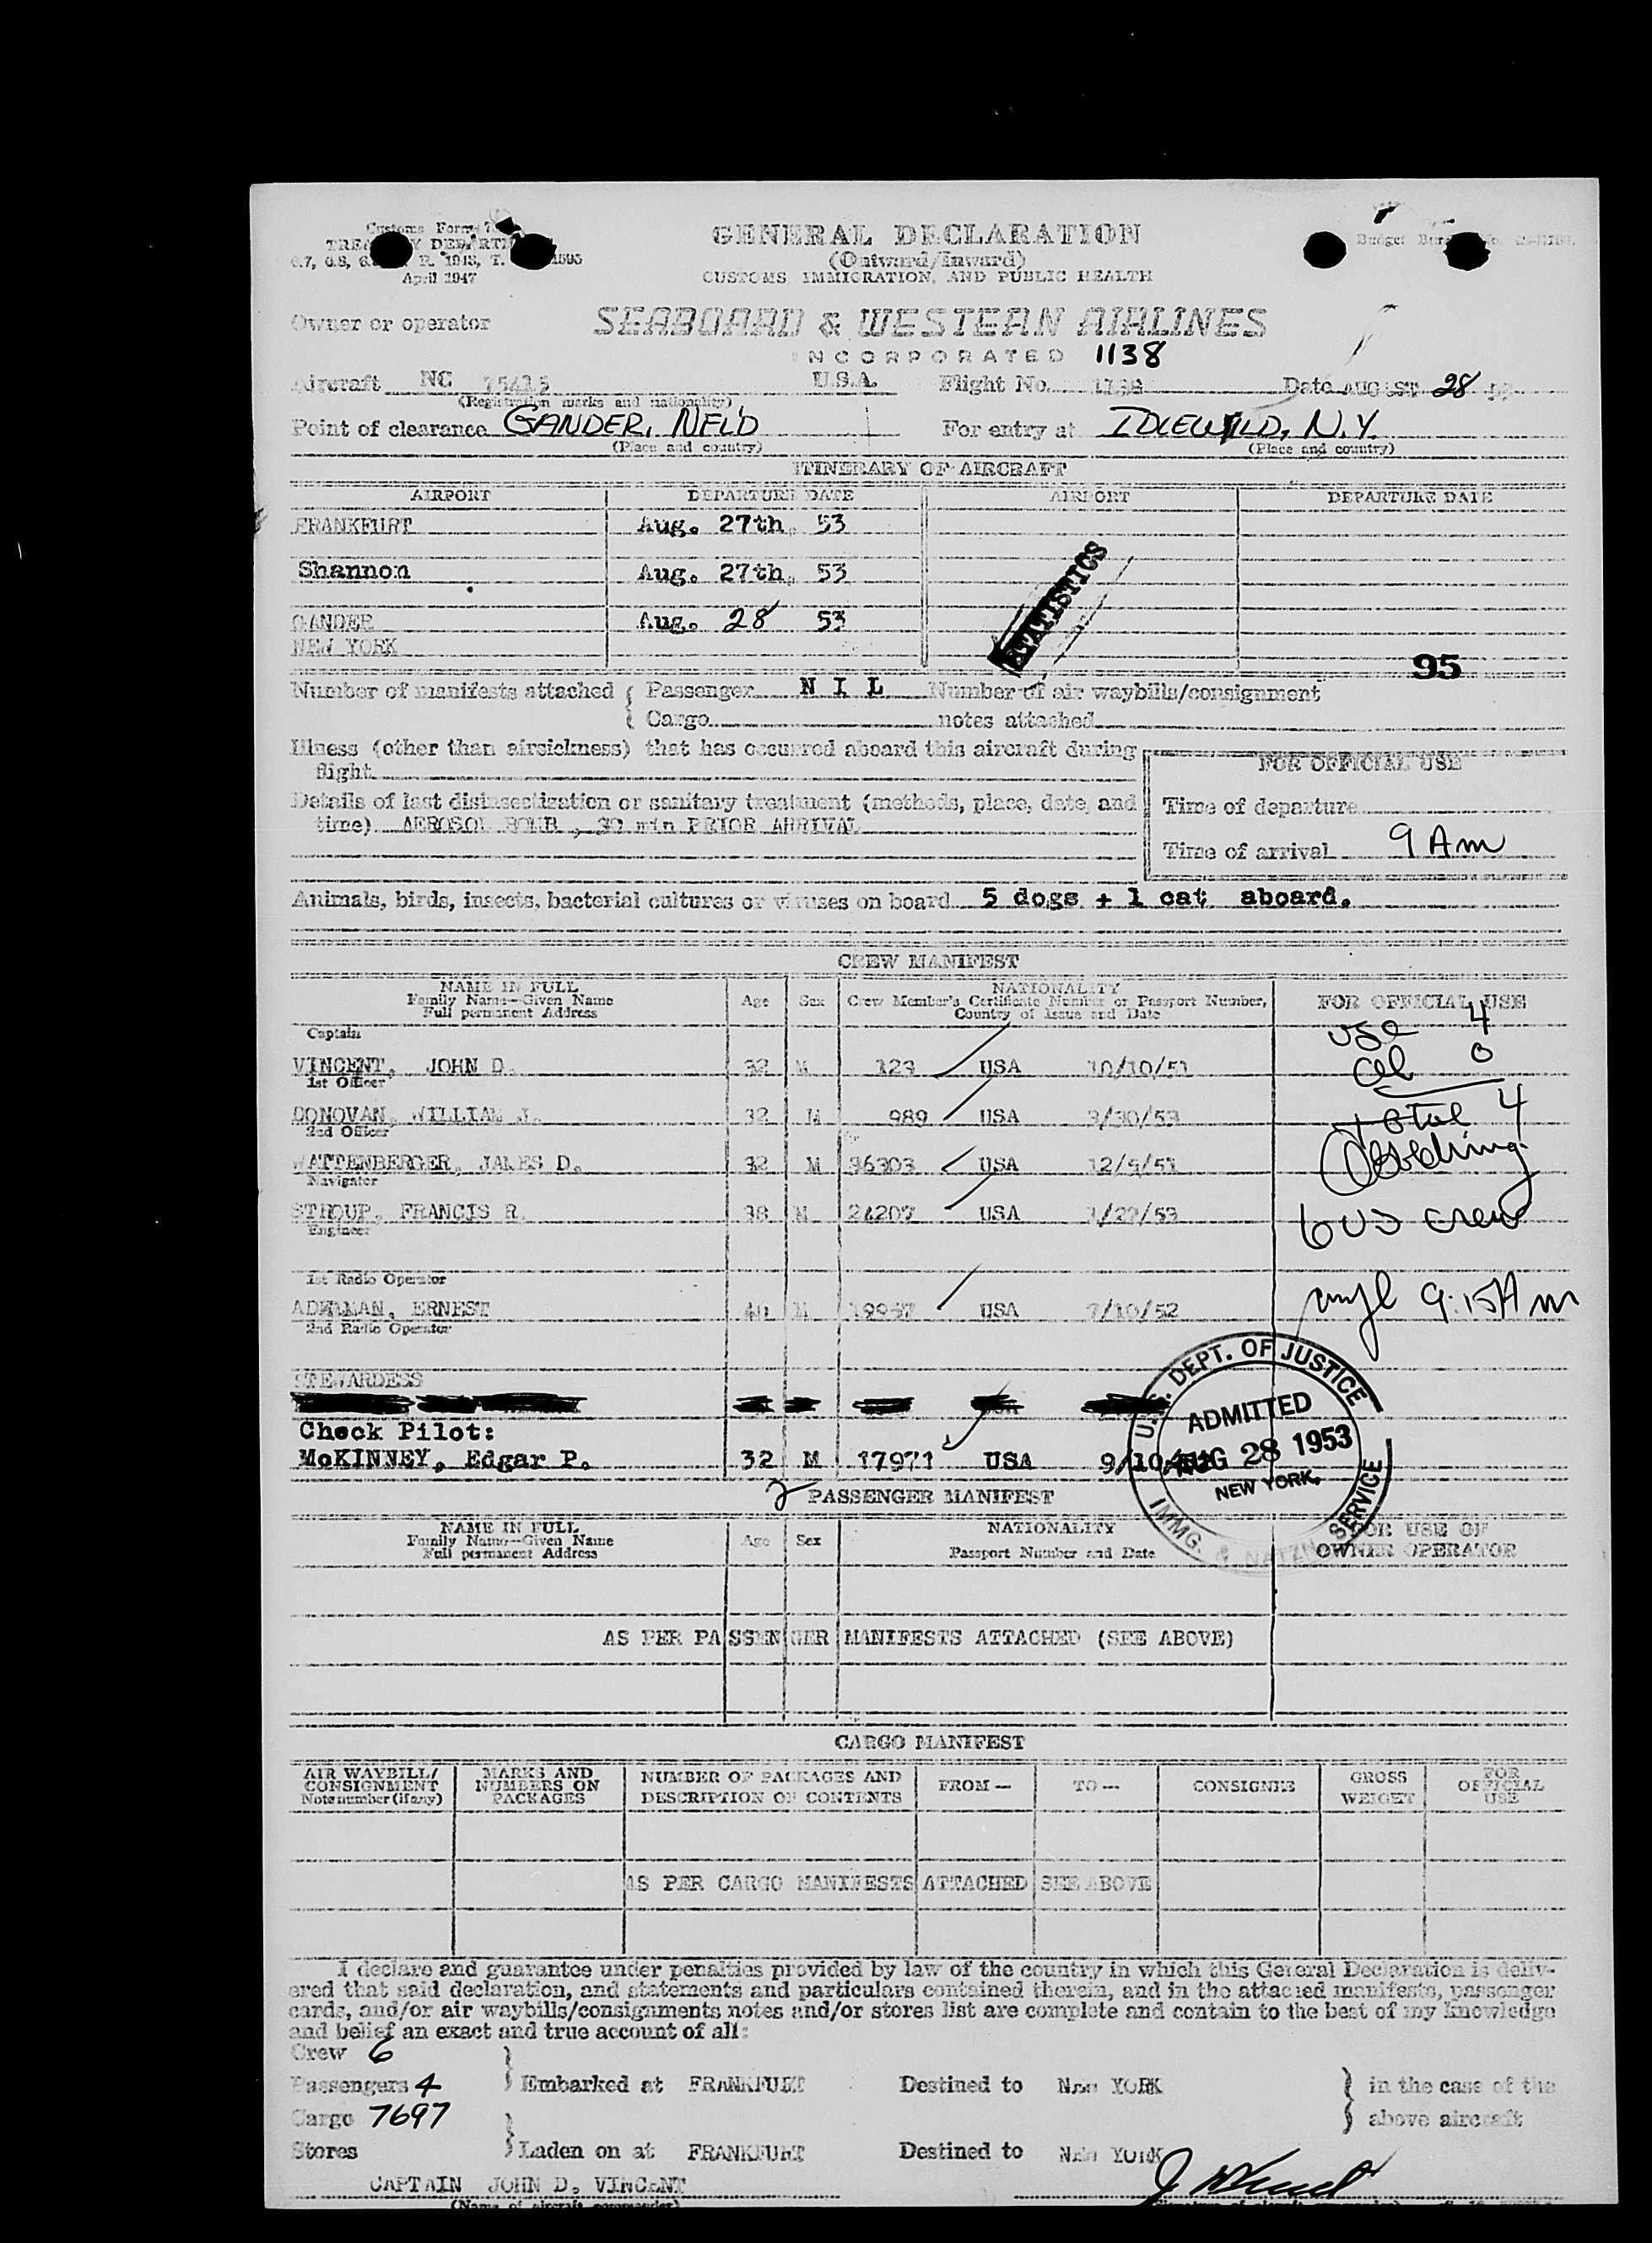 Customs Form
GENERAL DECLARATION
(Outward/Inward)
CUSTOMS IMMIGRATION, AND PUBLIC HEALTH
April 1947
Owner or operator SEABOARD & WESTERN AIRLINES
INCORPORATED 1138
Aircraft NC U.S.A. Flight No. 1138 Date AUGUST 28
(Registration marks and nationality)
Point of clearance GANDER, NFL'D For entry at IDLEWILD, N.Y.
(Place and country) (Place and country)
ITINERARY OF AIRCRAFT
AIRPORT DEPARTURE DATE AIRPORT DEPARTURE DATE
FRANKFURT Aug. 27th, 53
Shannon Aug. 27th, 53
STATISTICS
GANDER Aug. 28 53
NEW YORK
95
Number of manifests attached { Passenger N I L Number of air waybills/consignment
Cargo notes attached
Illness (other than airsickness) that has occurred aboard this aircraft during
flight
FOR OFFICIAL USE
Details of last disinsectization or sanitary treatment (methods, place, date, and
time) AEROSOL BOMB, 30 min PRIOR ARRIVAL
Time of departure
Time of arrival 9 Am
Animals, birds, insects, bacterial cultures or viruses on board 5 dogs + 1 cat aboard.
CREW MANIFEST
NAME IN FULL
Family Name—Given Name
Full permanent Address
Age Sex
NATIONALITY
Crew Member's Certificate Number or Passport Number,
Country of Issue and Date
FOR OFFICIAL USE
Captain
VINCENT, JOHN D. 32 M 123 USA 10/10/51
1st Officer
DONOVAN, WILLIAM J. 32 M 989 USA 3/30/53
2nd Officer
WATTENBERGER, JAMES D. 32 M 36303 USA
Navigator
STROUP, FRANCIS R. 38 M 24207 USA
Engineer
1st Radio Operator
ADERMAN, ERNEST 40 M USA 7/10/52
2nd Radio Operator
usc 4
al 0
total 4
6 US crew
9:15 A m
STEWARDESS
Check Pilot:
McKINNEY, Edgar P. 32 M 17971 USA
U.S. DEPT. OF JUSTICE
ADMITTED
AUG 28 1953
NEW YORK,
IMMG. & NATZN SERVICE
PASSENGER MANIFEST
NAME IN FULL
Family Name—Given Name
Full permanent Address
Age Sex
NATIONALITY
Passport Number and Date
FOR USE OF
OWNER OPERATOR
AS PER PASSENGER MANIFESTS ATTACHED (SEE ABOVE)
CARGO MANIFEST
AIR WAYBILL/
CONSIGNMENT
Note number (if any)
MARKS AND
NUMBERS ON
PACKAGES
NUMBER OF PACKAGES AND
DESCRIPTION OF CONTENTS
FROM — TO — CONSIGNEE
GROSS
WEIGHT
FOR
OFFICIAL
USE
AS PER CARGO MANIFESTS ATTACHED SEE ABOVE
I declare and guarantee under penalties provided by law of the country in which this General Declaration is deliv-
ered that said declaration, and statements and particulars contained therein, and in the attached manifests, passenger
cards, and/or air waybills/consignments notes and/or stores list are complete and contain to the best of my knowledge
and belief an exact and true account of all:
Crew 6
Passengers 4 } Embarked at FRANKFURT Destined to New YORK } in the case of the
Cargo 7697 above aircraft
Stores } Laden on at FRANKFURT Destined to New YORK
CAPTAIN JOHN D. VINCENT
(Name of aircraft commander)